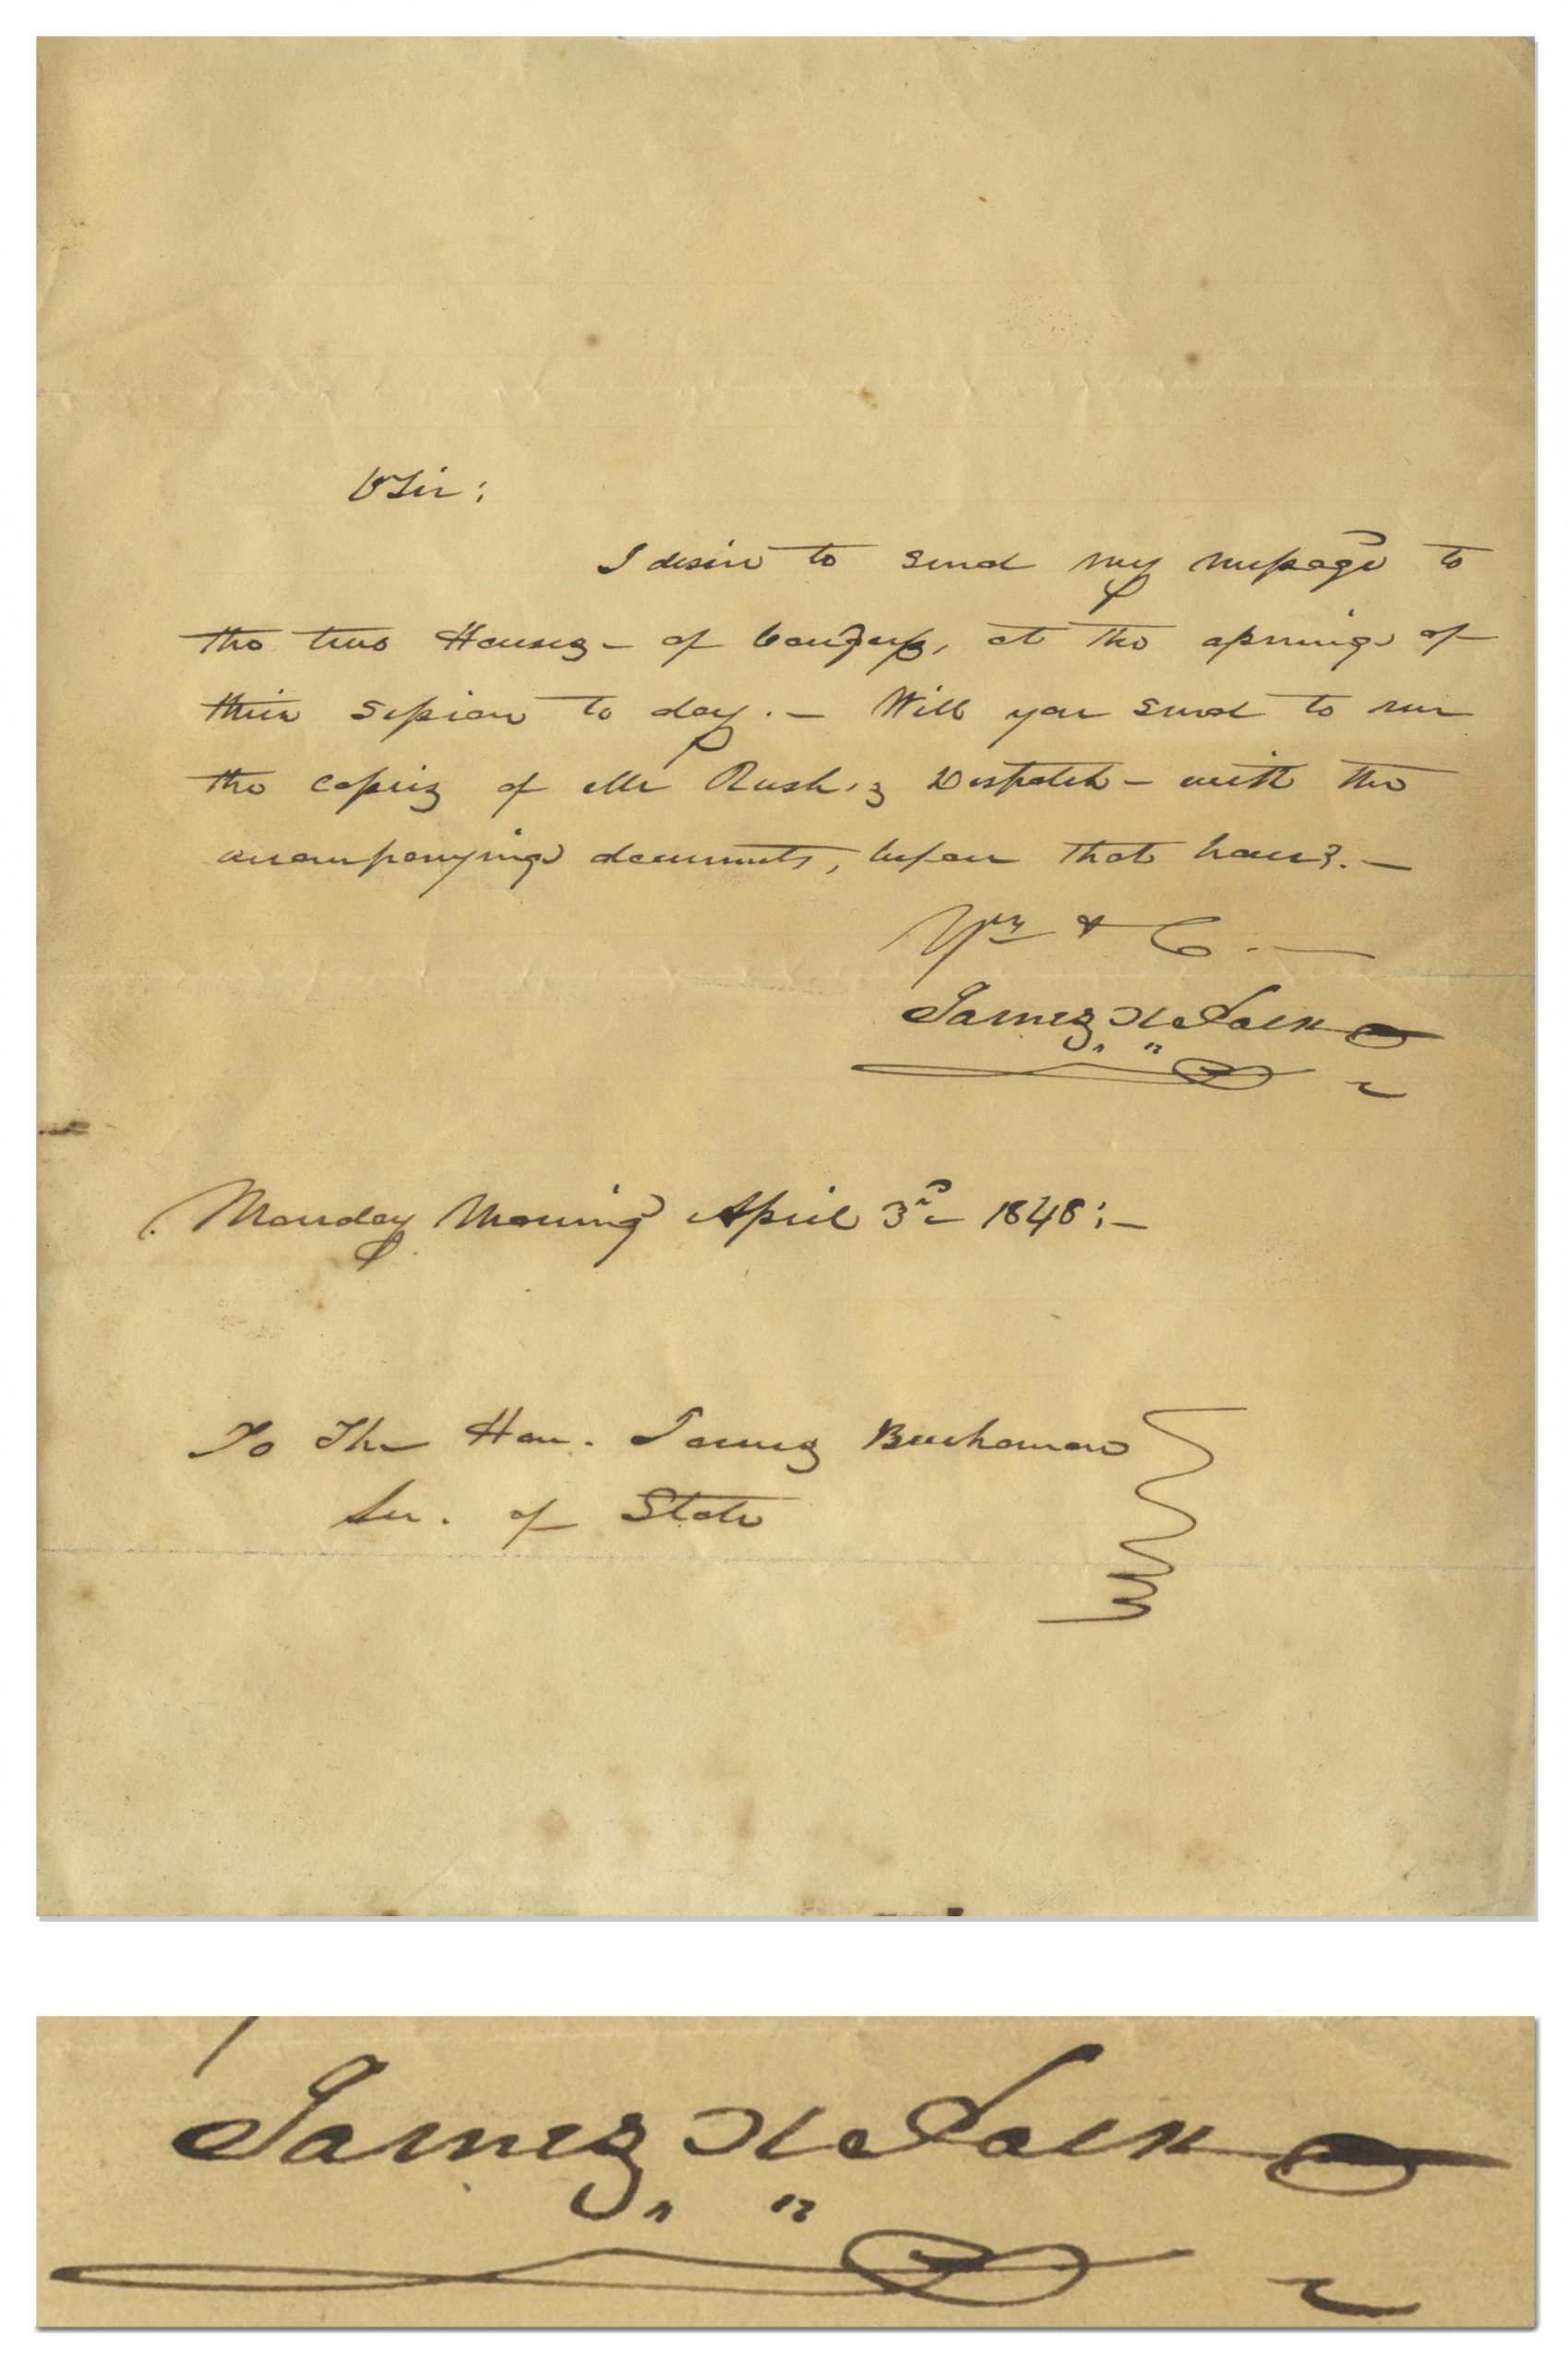 Sir:
I desire to send my message to
the two Houses - of Congress, at the opening of
their session to day. - Will you send to me
the copies of Mr Rush's Despatch - with the
accompanying documents, before that hour? -
Yrs & C. -
James K. Polk
Monday Morning April 3rd 1848: -
To The Hon. James Buchanan
Sec. of State
James K. Polk